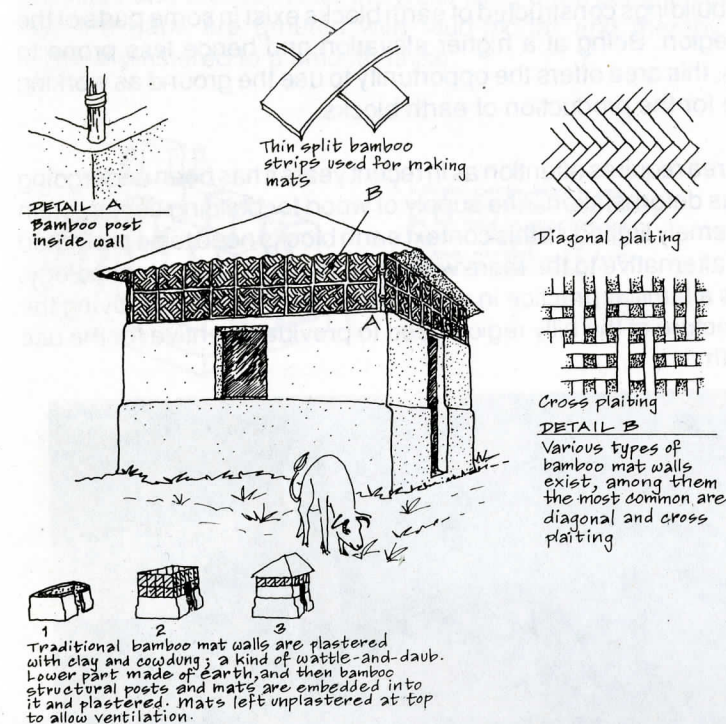 Thin split bamboo
strips used for making
mats
B
DETAIL A
Bamboo post
inside wall
Diagonal plaiting
A
Cross plaiting
DETAIL B
Various types of
bamboo mat walls
exist, among them
the most common are
diagonal and cross
plaiting
1 2 3
Traditional bamboo mat walls are plastered
with clay and cowdung; a kind of wattle-and-daub.
Lower part made of earth, and then bamboo
structural posts and mats are embedded into
it and plastered. Mats left unplastered at top
to allow ventilation.